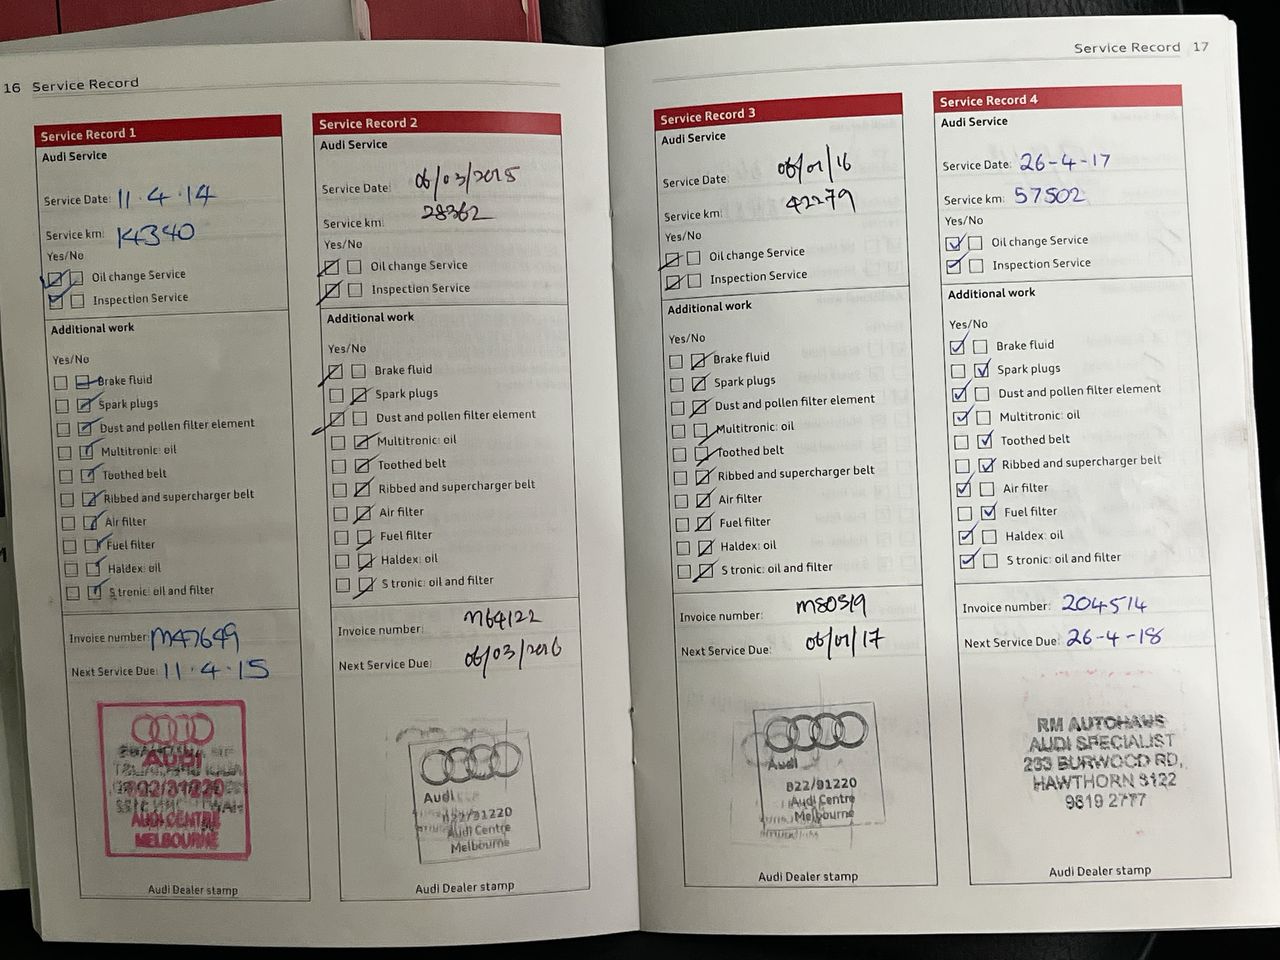 16 Service Record
Service Record 1
Audi Service
Service Date: 11.4.14
Service km: 14340
Yes/No
Oil change Service
Inspection Service
Additional work
Yes/No
Brake fluid
Spark plugs
Dust and pollen filter element
Multitronic: oil
Toothed belt
Ribbed and supercharger belt
Air filter
Fuel filter
Haldex: oil
S tronic: oil and filter
Invoice number: M47649
Next Service Due: 11.4.15
AUDI
822/31220
AUDI CENTRE
MELBOURNE
Service Record 2
Audi Service
Service Date: 06/03/2015
Service km: 28362
Yes/No
Oil change Service
Inspection Service
Additional work
Yes/No
Brake fluid
Spark plugs
Dust and pollen filter element
Multitronic: oil
Toothed belt
Ribbed and supercharger belt
Air filter
Fuel filter
Haldex: oil
S tronic: oil and filter
Invoice number: M64122
Next Service Due: 06/03/2016
Audi
Audi Centre
Melbourne
Audi Dealer stamp
Audi Dealer stamp
Service Record 17
Service Record 3
Audi Service
Service Date: 06/01/16
Service km: 42279
Yes/No
Oil change Service
Inspection Service
Additional work
Yes/No
Brake fluid
Spark plugs
Dust and pollen filter element
Multitronic: oil
Toothed belt
Ribbed and supercharger belt
Air filter
Fuel filter
Haldex: oil
S tronic: oil and filter
Invoice number: M80519
Next Service Due: 06/01/17
Audi
822/31220
Audi Centre
Melbourne
Audi Dealer stamp
Service Record 4
Audi Service
Service Date: 26-4-17
Service km: 57502
Yes/No
Oil change Service
Inspection Service
Additional work
Yes/No
Brake fluid
Spark plugs
Dust and pollen filter element
Multitronic: oil
Toothed belt
Ribbed and supercharger belt
Air filter
Fuel filter
Haldex: oil
S tronic: oil and filter
Invoice number: 204514
Next Service Due: 26-4-18
RM AUTOHAUS
AUDI SPECIALIST
233 BURWOOD RD,
HAWTHORN 3122
9819 2777
Audi Dealer stamp